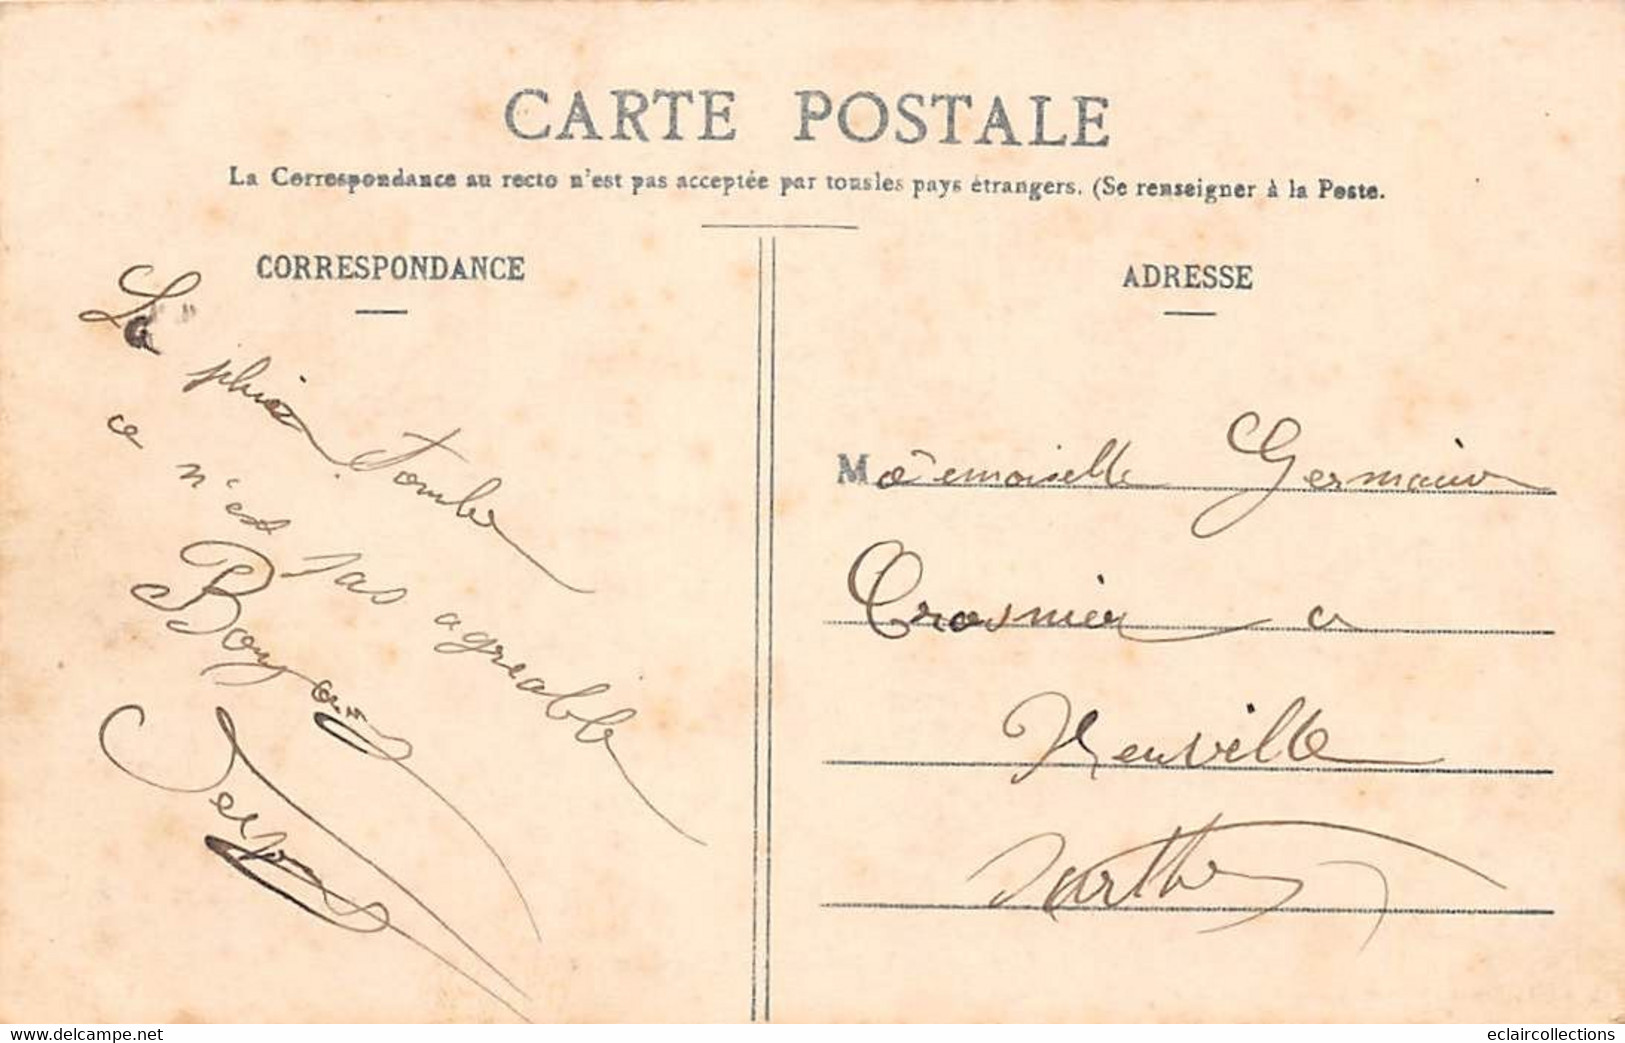 CARTE POSTALE
La Correspondance au recto n'est pas acceptée par tous les pays étrangers. (Se renseigner à la Poste.
CORRESPONDANCE
La pluie tombe
ce n'est pas agreable
ADRESSE
Mademoiselle Germaine
Crosnier a
Neuville
Sarthe
www.delcampe.net
eclaircollections